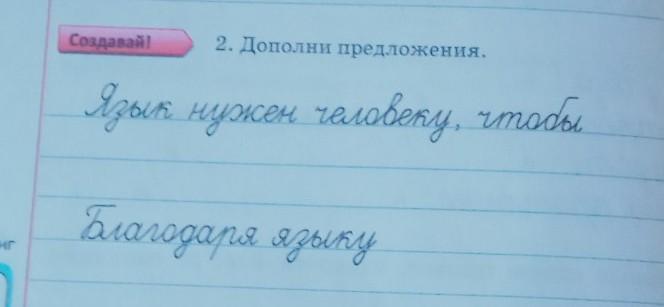 Создавай!
2. Дополни предложения.
Язык нужен человеку, чтобы
Благодаря языку
нг